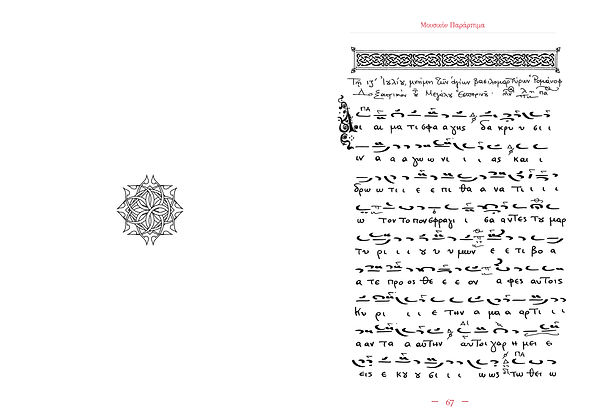 Μουσικὸν Παράρτημα
Τῇ ιζ´ Ἰουλίου, μνήμη τῶν ἁγίων βασιλομαρτύρων Ῥομανόφ
Δοξαστικὸν τοῦ Μεγάλου Ἑσπερινοῦ
ΠΑ
Οι αι μα τι σφα α γης δα κρυ υ σι ι
ιν α α α γω ω νι ι ι ας και ι
δρω ω τι ι ε ε πι θα α να τι ι ι ι
ω τον το πονσφραγι ι σα αντες του μαρ
τυ ρι ι ι γυ υ μων ε ε τι βο α
α τε προ ος θε ε ε ον α φες αυτοις
Κυ ρι ι ι ε την α μα α αρ τι ι ι
α αν τα α αυτην αυτοι γαρ η μει ε
εις ε κυ γυ σι ι ι ω ως τω θει ω
— 67 —